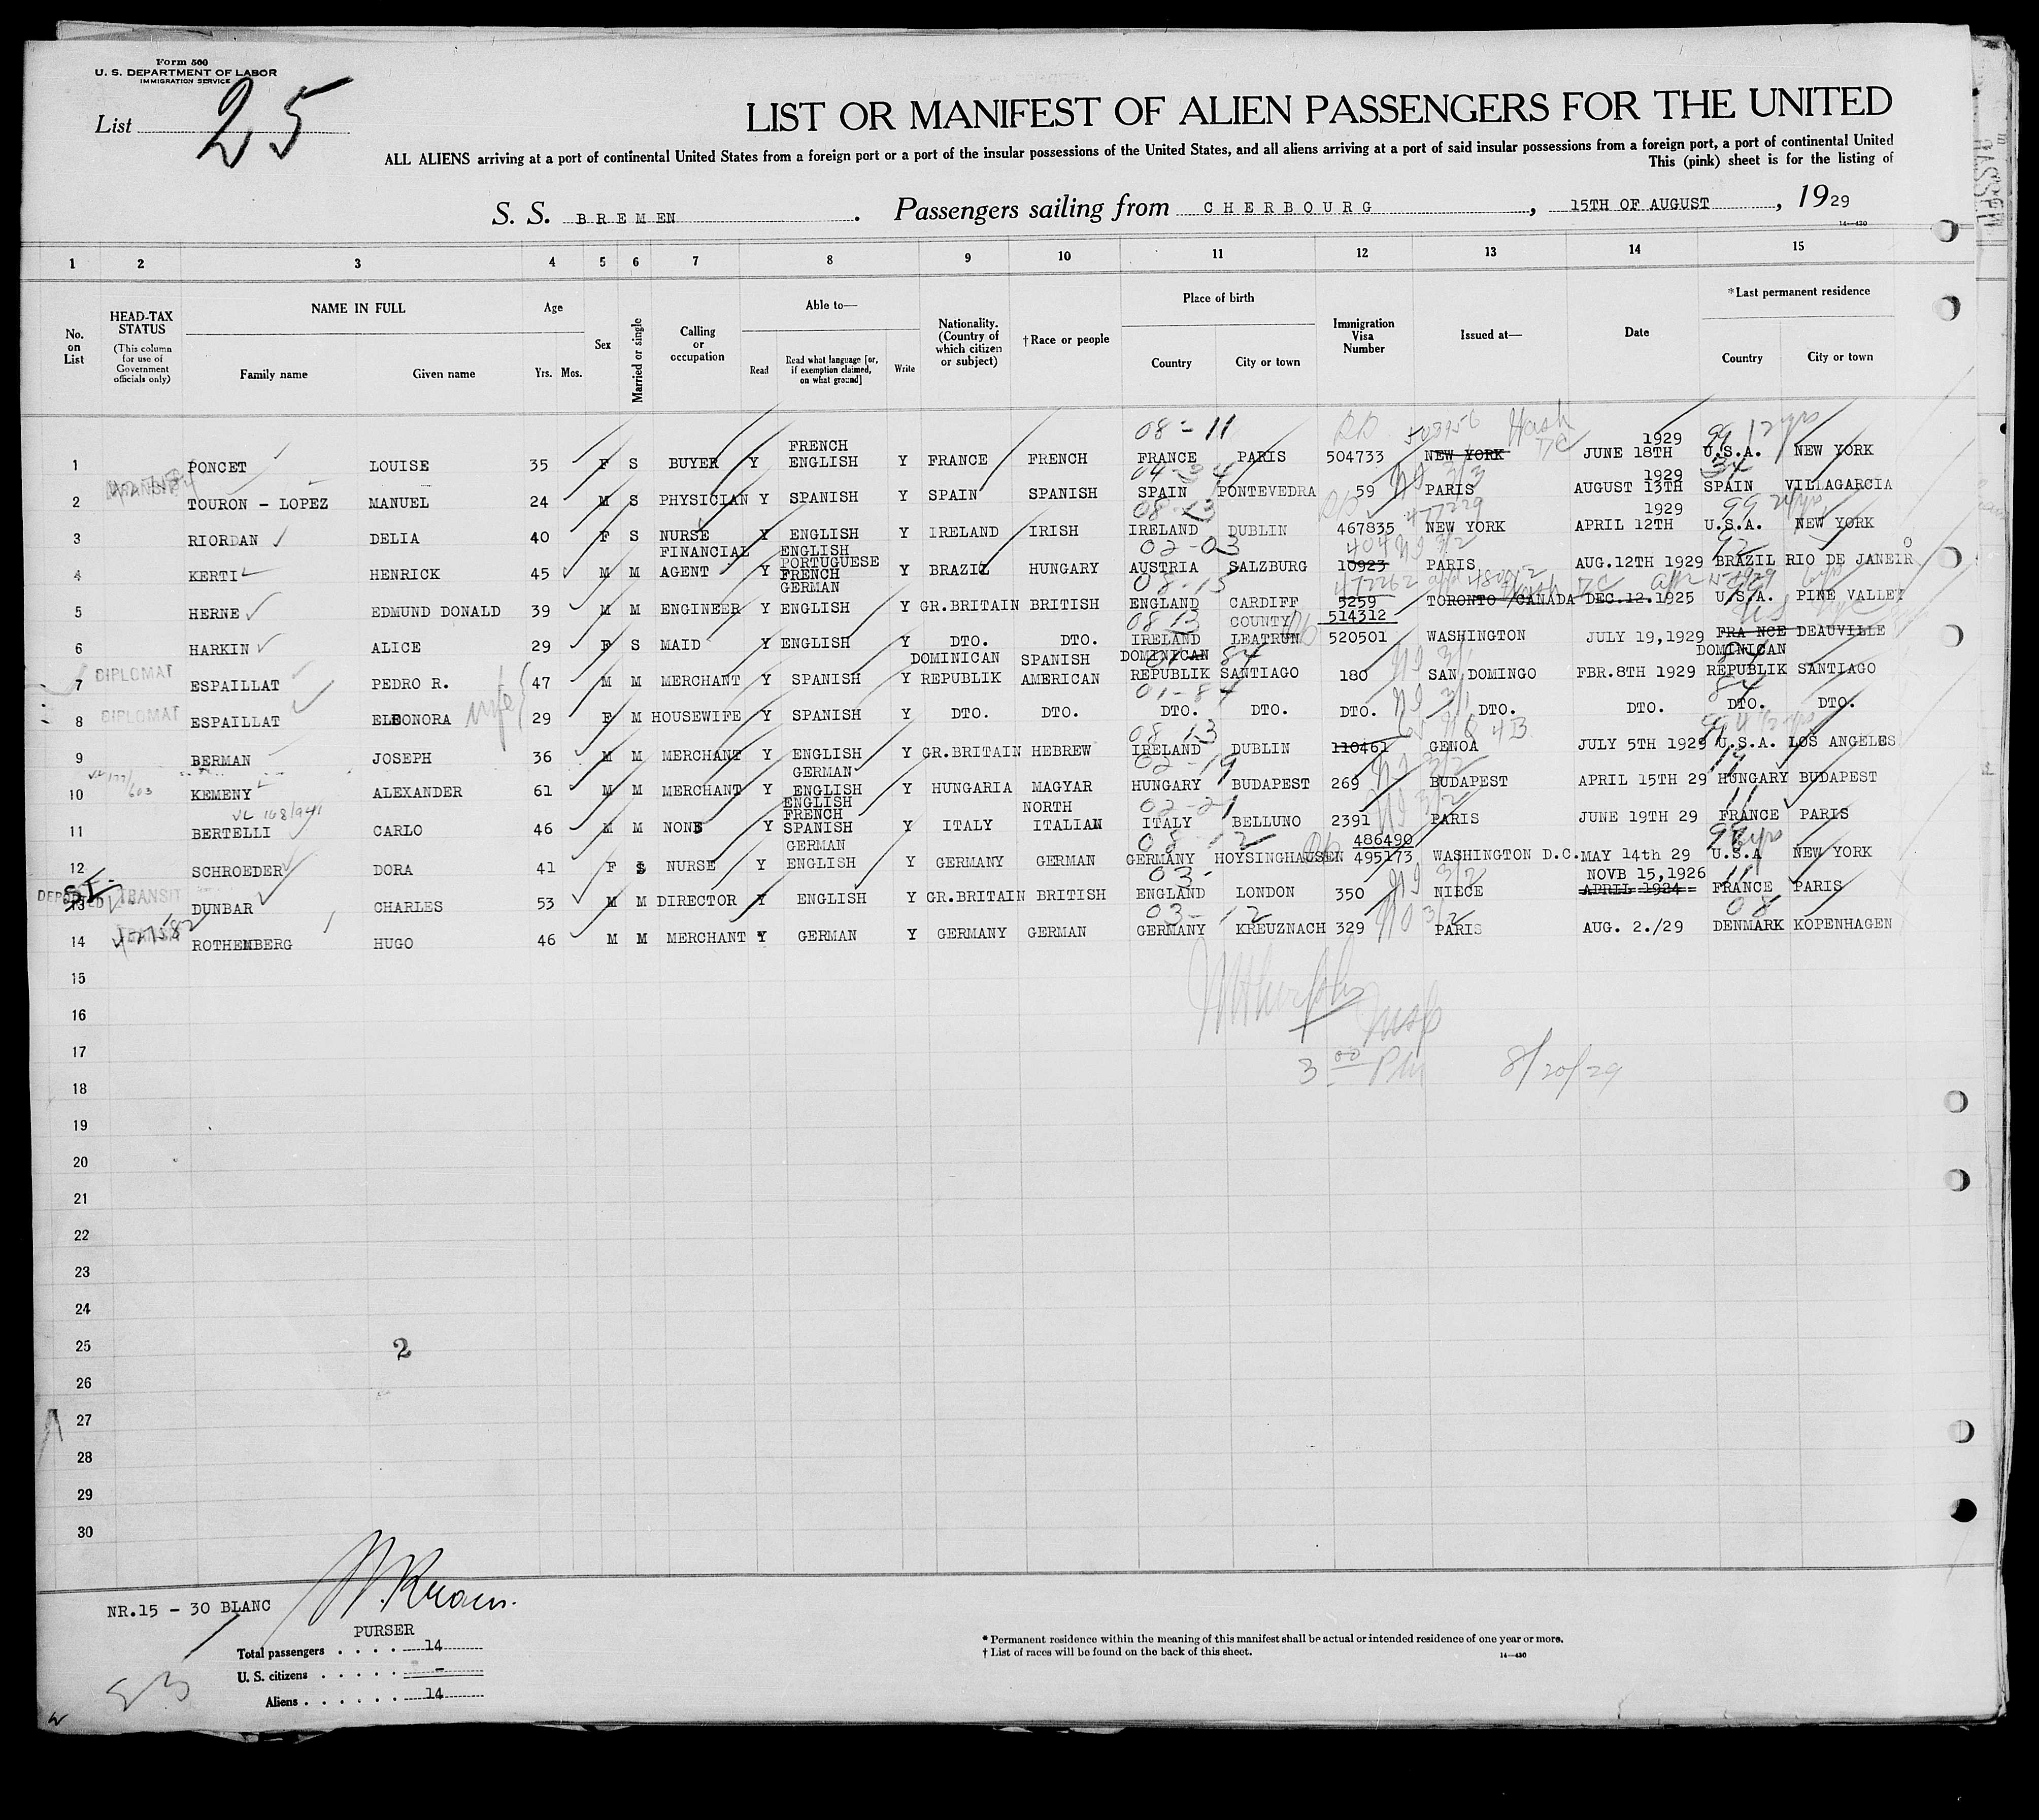 Form 500
U. S. DEPARTMENT OF LABOR
IMMIGRATION SERVICE
List 25
LIST OR MANIFEST OF ALIEN PASSENGERS FOR THE UNITED
ALL ALIENS arriving at a port of continental United States from a foreign port or a port of the insular possessions of the United States, and all aliens arriving at a port of said insular possessions from a foreign port, a port of continental United
This (pink) sheet is for the listing of
S. S. BREMEN . Passengers sailing from CHERBOURG , 15TH OF AUGUST , 1929
14—430
1 2 3 4 5 6 7 8 9 10 11 12 13 14 15
No. on List HEAD-TAX STATUS (This column for use of Government officials only) NAME IN FULL Family name Given name Age Yrs. Mos. Sex Married or single Calling or occupation Able to— Read Read what language [or, if exemption claimed, on what ground] Write Nationality. (Country of which citizen or subject) †Race or people Place of birth Country City or town Immigration Visa Number Issued at— Date *Last permanent residence Country City or town
08-11 Wash
FRENCH 1929
1 PONCET LOUISE 35 F S BUYER Y ENGLISH Y FRANCE FRENCH FRANCE PARIS 504733 NEW YORK JUNE 18TH U.S.A. NEW YORK
1929
2 TOURON - LOPEZ MANUEL 24 M S PHYSICIAN Y SPANISH Y SPAIN SPANISH SPAIN PONTEVEDRA 59 PARIS AUGUST 13TH SPAIN VILLAGARCIA
08-13 1929
3 RIORDAN DELIA 40 F S NURSE Y ENGLISH Y IRELAND IRISH IRELAND DUBLIN 467835 NEW YORK APRIL 12TH U.S.A. NEW YORK
FINANCIAL ENGLISH 02-03
PORTUGUESE
4 KERTI HENRICK 45 M M AGENT Y FRENCH Y BRAZIL HUNGARY AUSTRIA SALZBURG 10923 PARIS AUG.12TH 1929 BRAZIL RIO DE JANEIRO
GERMAN 08-13
5 HERNE EDMUND DONALD 39 M M ENGINEER Y ENGLISH Y GR.BRITAIN BRITISH ENGLAND CARDIFF 5259 TORONTO /CANADA DEC.12.1925 U.S.A. PINE VALLEY
08 13 COUNTY 514312
6 HARKIN ALICE 29 F S MAID Y ENGLISH Y DTO. DTO. IRELAND LEATRUM 520501 WASHINGTON JULY 19,1929 FRANCE DEAUVILLE
DOMINICAN SPANISH DOMINICAN DOMINICAN
7 DIPLOMAT ESPAILLAT PEDRO R. 47 M M MERCHANT Y SPANISH Y REPUBLIK AMERICAN REPUBLIK SANTIAGO 180 SAN DOMINGO FBR.8TH 1929 REPUBLIK SANTIAGO
wife 01-84 84
8 DIPLOMAT ESPAILLAT ELEONORA 29 F M HOUSEWIFE Y SPANISH Y DTO. DTO. DTO. DTO. DTO. DTO. DTO. DTO. DTO.
08 13
9 BERMAN JOSEPH 36 M M MERCHANT Y ENGLISH Y GR.BRITAIN HEBREW IRELAND DUBLIN 110461 GENOA JULY 5TH 1929 U.S.A. LOS ANGELES
GERMAN 02-19 19
10 KEMENY ALEXANDER 61 M M MERCHANT Y ENGLISH Y HUNGARIA MAGYAR HUNGARY BUDAPEST 269 BUDAPEST APRIL 15TH 29 HUNGARY BUDAPEST
ENGLISH NORTH 02-21 11
FRENCH
11 BERTELLI CARLO 46 M M NONE Y SPANISH Y ITALY ITALIAN ITALY BELLUNO 2391 PARIS JUNE 19TH 29 FRANCE PARIS
GERMAN 08-12 486490
12 SCHROEDER DORA 41 F S NURSE Y ENGLISH Y GERMANY GERMAN GERMANY HOYSINGHAUSEN 495173 WASHINGTON D.C. MAY 14th 29 U.S.A NEW YORK
03- NOVB 15,1926 11
13 TRANSIT DUNBAR CHARLES 53 M M DIRECTOR Y ENGLISH Y GR.BRITAIN BRITISH ENGLAND LONDON 350 NIECE APRIL 1924 FRANCE PARIS
03-12 08
14 ROTHEMBERG HUGO 46 M M MERCHANT Y GERMAN Y GERMANY GERMAN GERMANY KREUZNACH 329 PARIS AUG. 2./29 DENMARK KOPENHAGEN
15
16
17
3 00 PM 8/20/29
18
19
20
21
22
23
24
25 2
26
27
28
29
30
NR.15 - 30 BLANC
PURSER
Total passengers . . . . 14
U. S. citizens . . . . . -
Aliens . . . . . . 14
* Permanent residence within the meaning of this manifest shall be actual or intended residence of one year or more.
† List of races will be found on the back of this sheet.
14—430